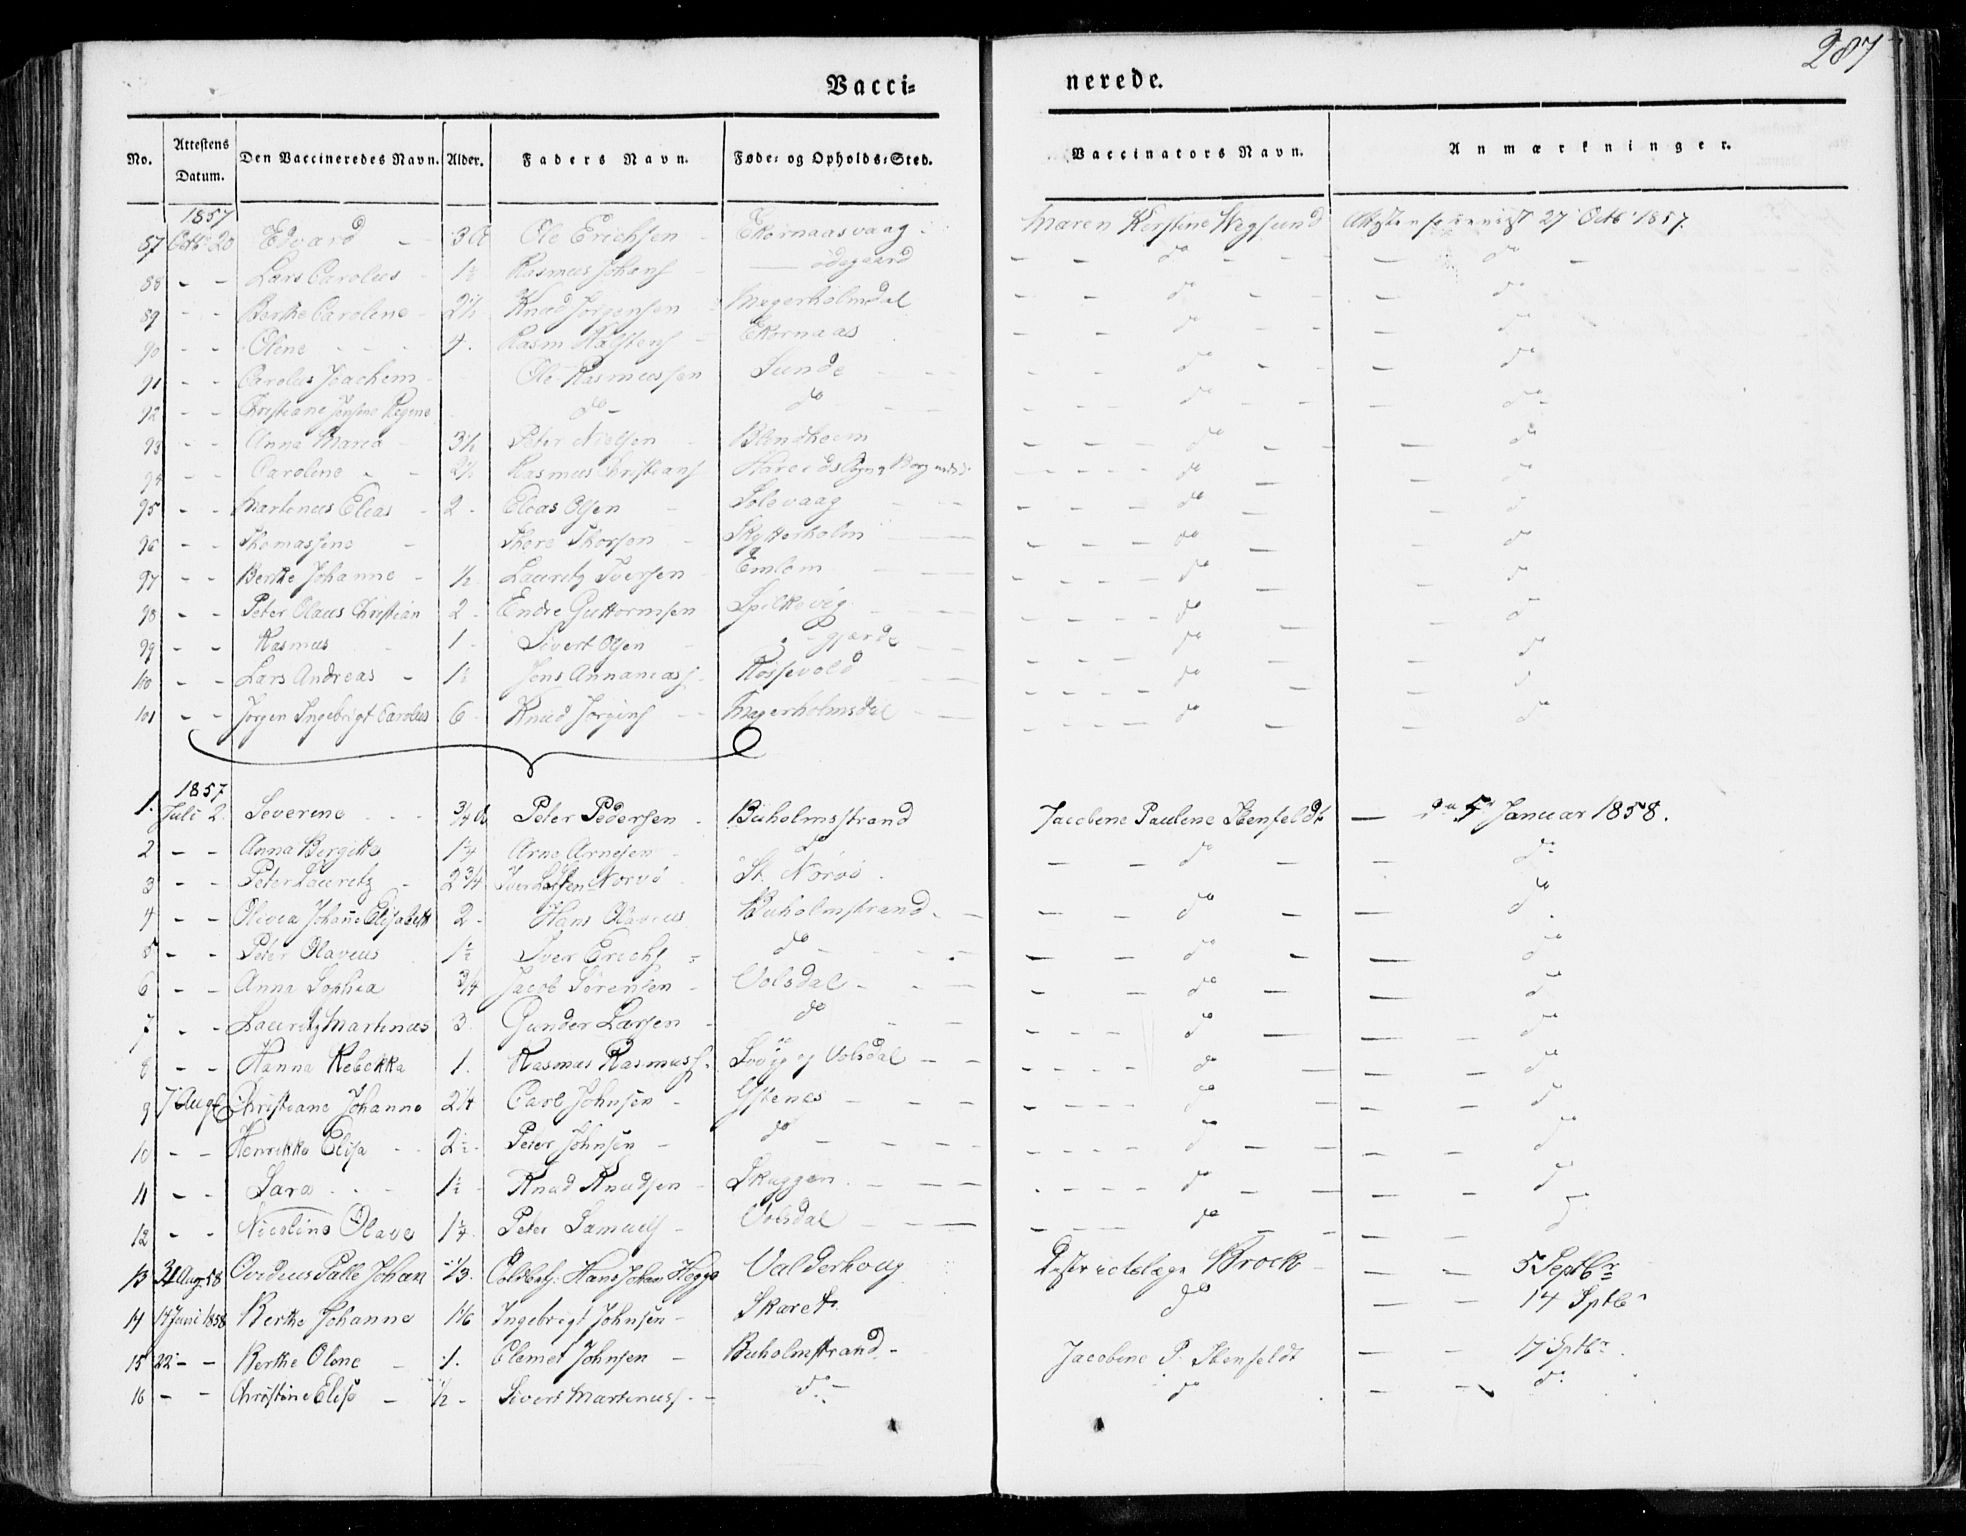 287
Vacci=
nerede.
No. Attestens Datum. Den Vaccineredes Navn. Alder. Faders Navn. Føde= og Opholds=Sted. Vaccinators Navn. Anmærkninger.
1857
87 Octb 20 Edvard - 3 Ole Erichsen - Ekornaasvaag - Maren Kerstine Wegsund 27 Octb 1857.
88 - - Lars Carolus - 1½ Rasmus Johans - - ödegaard - - do - - - do -
89 - - Berthe Caroline - 2½ Knud Jörgensen - Magerholmdal - - do - - - do
90 - - Oline - - - 4. Rasm Ekornaas - - do - - - do
91 - - Carolus Joachem - Ole Rasmussen Sunde - - - - - do - - - do
92 - - Christiane Jensine Regine do - do - - - - do - - - do
93 - - Anna Maria - 3½ Peter Nielsen - Blindheim - - - do - - do
94 - - Caroline - - 2½ Rasmus Christians Hareids Sogn - - - - do - - do
95 - - Martinus Elias - 2 - Elias Olsen - Solevaag - - - - - do - - do
96 - - Thomassine - Thore Thorsen - Skytterholm - - - - - do - - do
97 - - Berthe Johanne - ½ - Lauritz Iversen - Emlem - - - - - - do - - do
98 - - Peter Olaus Christian 2 - Endre Guttormsen Spilkevig - - - - - - do - - do
99 - - Rasmus - 1 - Sivert Olsen - - gjærde - - - - - do - - do
100 - - Lars Andreas - 1½ Jens Annanias - Rössevold - - - - - - do - - - do
101 - - Jörgen Ingebrigt Carolus 6 - Knud Jörgens - - Magerholmsdal - - - - - - do - - - do
1857
1. Juli 2. Severine - - - ¾ Peter Pedersen - Buholmsstrand Jacobine Pauline Stenfeldt - 5 Januar 1858.
2 - - Anna Birgitte 1¼ Arne Arnesen - do - - do - - do
3 - - Peter Lauritz - 2¾ Norvö St. Nörvö - do
4 - - Olivia Johanne Elisabeth 2 - Hans Olavius Buholmstrand - - - - do - - do
5 - - Peter Olavius 1½ Iver Erichs - do - - - - - do - - do
6 - - Anna Sophia ¾ Jacob Sörensen - Volsdal - - - - - do - - do
7 - - Lauritz Martinus 3 Gunder Larsen - do - - - - - do - - do
8 - - Hanna Rebekka 1. Rasmus Rasmuss. Volsdal - - - - - - do - - do
9 7 Aug Christiane Johanne 2¼ Carl Johnsen - Ystenes - - - - - - do - - - do
10 - - Henrikke Elisa - - 2½ - Peter Johnsen - do - - - - - - - do - - - do
11 - - Sara - - - 1½ - Knud Knudsen - Skuggen - - - - - - do - - - - do
12 - - Nicoline Olave 1¼ Peter Samuels - Volsdal - - - - - - do - - - - do
13 31 Aug 58 Ovidius Palle Johan 1/3 Hans Johan Hegge Valderhoug Brock - - - 5 Septbr
14 14 Juni 1858 Berthe Johanne 1 1/6 Ingebrigt Johnsen - Skaret do - - 14 Sptbr
15 22 - - Berthe Oline - 1. Clemet Johnsen - Buholmstrand - Jacobine P. Stenfeldt - - 17 Sptbr
16 - - Christine Elise - ½ - Sivert Martinuss. - do - do - - do